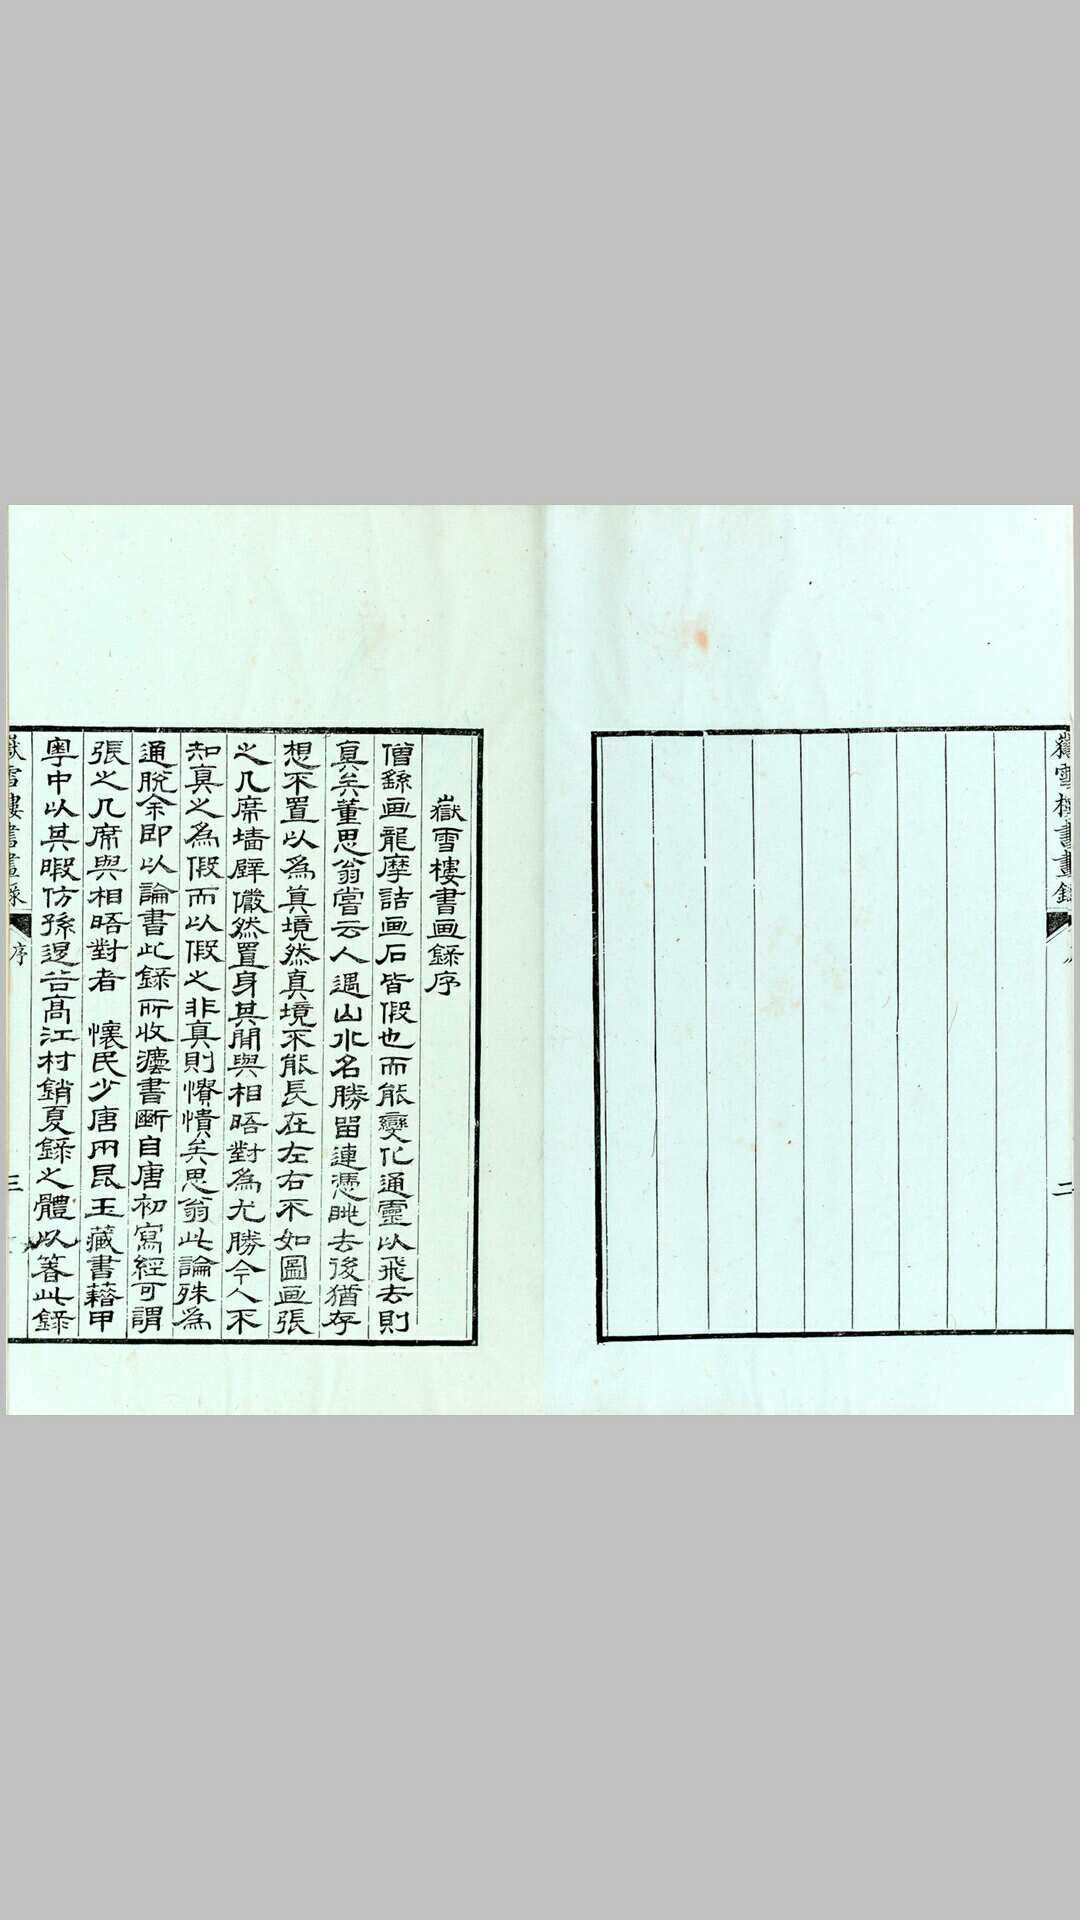 嶽雪樓書畫錄
二
嶽雪樓書画錄序
僧繇画龍摩詰画石皆假也而能變化通靈以飛去則
真矣董思翁嘗云人遇山水名勝留連憑眺去後猶存
想不置以為真境然真境不能長在左右不如圖画張
之几席墻壁儼然置身其間與相晤對為尤勝今人不
知真之為假而以假之非真則憒憒矣思翁此論殊為
通脫余即以論書此錄所收灋書斷自唐初寫經可謂
張之几席與相晤對者 懷民少唐兩昆玉藏書籍甲
粵中以其暇仿孫退谷高江村銷夏錄之體以箸此錄
嶽雪樓書畫錄
序
三